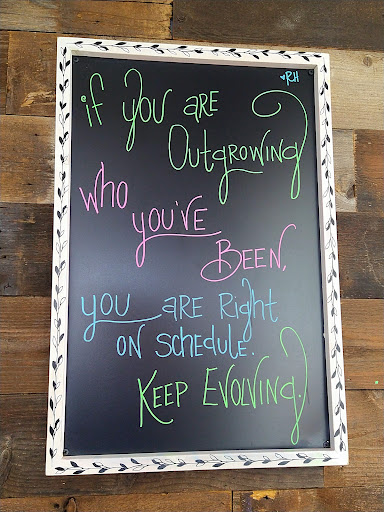 ♥RH
if you are
Outgrowing
who
you've
Been,
you are Right
on schedule.
Keep Evolving.